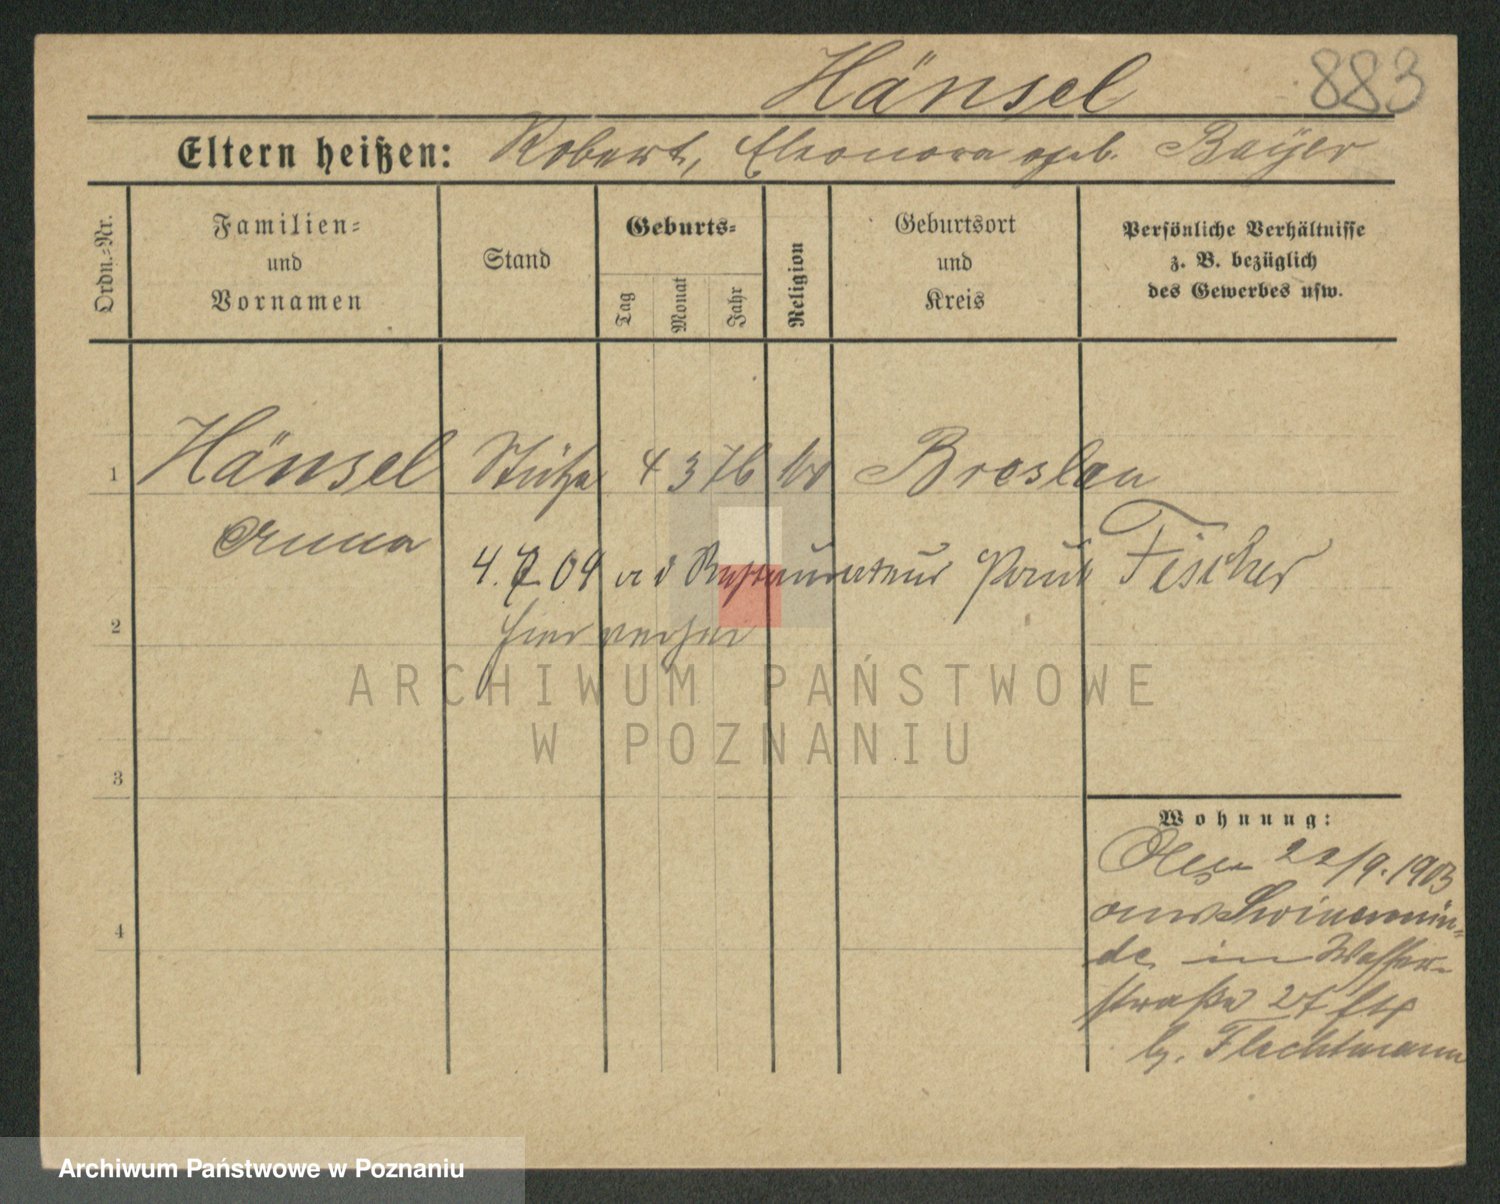 Hänsel 883
Eltern heißen: Robert, Eleonora geb. Bayer
Ordn.-Nr.
Familien-
und
Vornamen
Stand
Geburts-
Tag
Monat
Jahr
Religion
Geburtsort
und
Kreis
Persönliche Verhältnisse
z. B. bezüglich
des Gewerbes usw.
1 Hänsel Stütze 4 3 76 Breslau
Anna
4. 7 04 Restaurateur Paul Fischer
2 hier
ARCHIWUM PAŃSTWOWE
W POZNANIU
3
Wohnung:
22/9.1903
aus Swinemün-
4
de in Wasser-
straße 27
b. Flechtmann
Archiwum Państwowe w Poznaniu